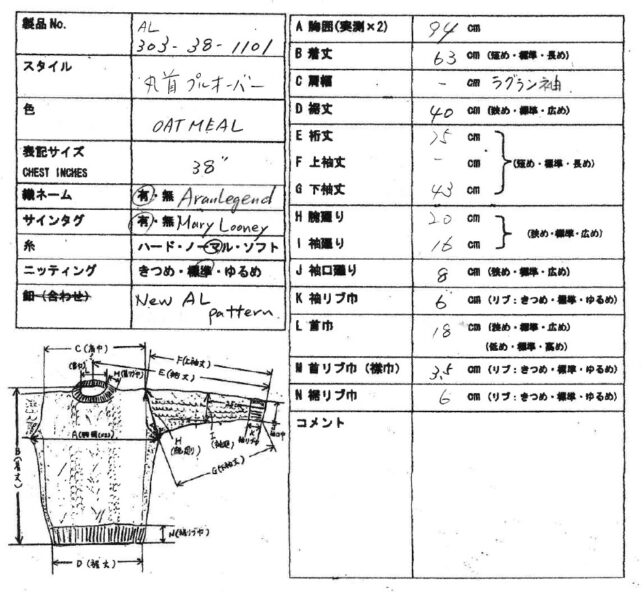 製品No.
AL
303-38-1101
スタイル
丸首プルオーバー
色
OATMEAL
表記サイズ
CHEST INCHES
38"
織ネーム 有・無 AranLegend
サインタグ 有・無 Mary Looney
糸 ハード・ノーマル・ソフト
ニッティング きつめ・標準・ゆるめ
釦(合わせ)
New AL
pattern
A 胸囲(実測×2) 94 cm
B 着丈 63 cm (短め・標準・長め)
C 肩幅 - cm ラグラン袖
D 裾丈 40 cm (狭め・標準・広め)
E 裄丈 75 cm
F 上袖丈 - cm (短め・標準・長め)
G 下袖丈 43 cm
H 腕廻り 20 cm
(狭め・標準・広め)
I 袖廻り 16 cm
J 袖口廻り 8 cm (狭め・標準・広め)
K 袖リブ巾 6 cm (リブ:きつめ・標準・ゆるめ)
L 首巾 18 cm (狭め・標準・広め)
(低め・標準・高め)
M 首リブ巾(襟巾) 3.5 cm (リブ:きつめ・標準・ゆるめ)
N 裾リブ巾 6 cm (リブ:きつめ・標準・ゆるめ)
コメント
C(肩巾)
F(上袖丈)
E(裄丈)
L
(首巾)
M(首リブ巾)
A(胸囲(×2))
B(着丈)
H
I
K
J
G(下袖丈)
N(裾リブ巾)
D(裾丈)